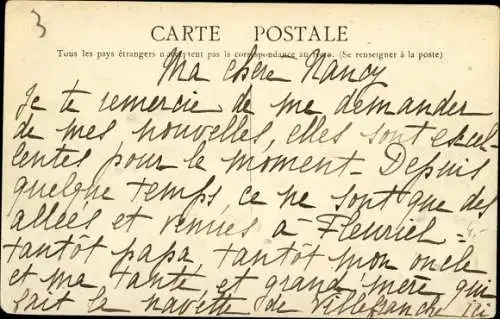 3
CARTE POSTALE
Tous les pays étrangers n'acceptent pas la correspondance au (Se renseigner à la poste)
Ma chère Nancy
Je te remercie de me demander
de mes nouvelles, elles sont excel-
lentes pour le moment - Depuis
quelque temps, ce ne sont que des
allées et venues à Fleuriel =
tantôt papa, tantôt mon oncle
et ma tante et grand mère qui
fait la navette de Villefranche ici